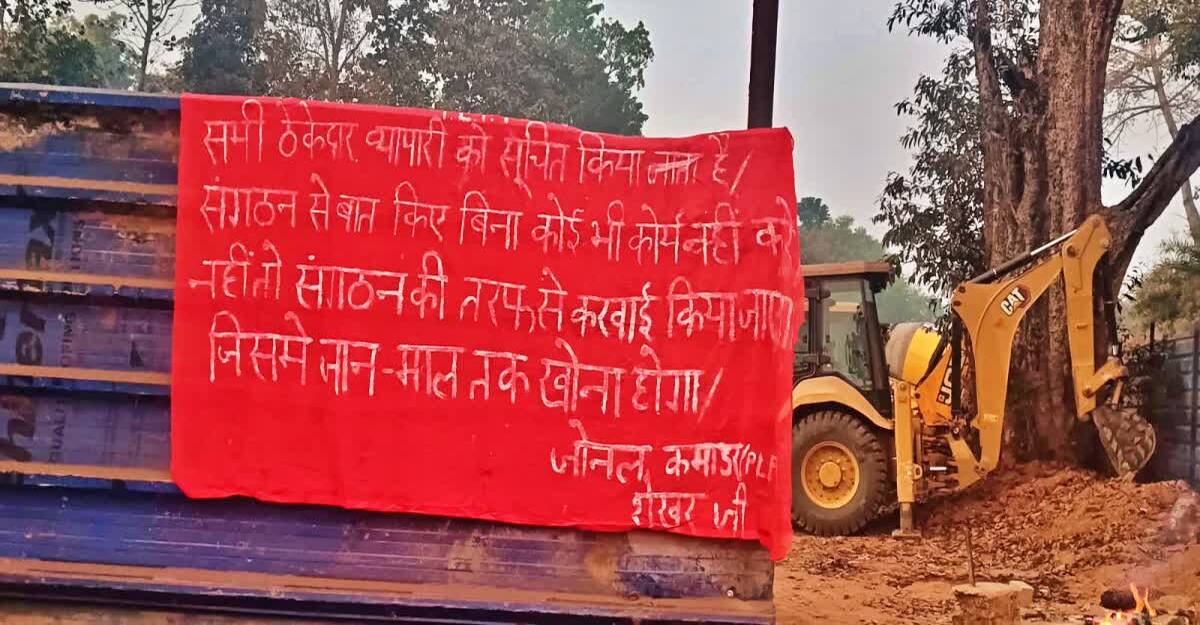 सभी ठेकेदार व्यापारी को सूचित किया जाता है/
संगठन से बात किए बिना कोई भी कोर्य नहीं करे
नहीं तो संगठन की तरफ से करवाई किया जाए
जिसमे जान-माल तक खोना होगा/
जोनल कमांडर (PLF
शेखर जी
CAT